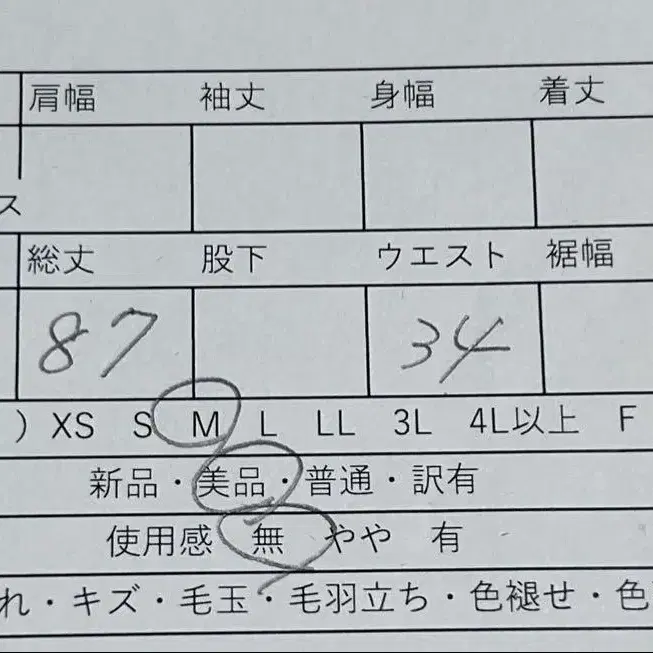 肩幅 袖丈 身幅 着丈
ス
総丈 股下 ウエスト 裾幅
87 34
) XS S M L LL 3L 4L以上 F
新品・美品・普通・訳有
使用感 無 やや 有
れ・キズ・毛玉・毛羽立ち・色褪せ・色